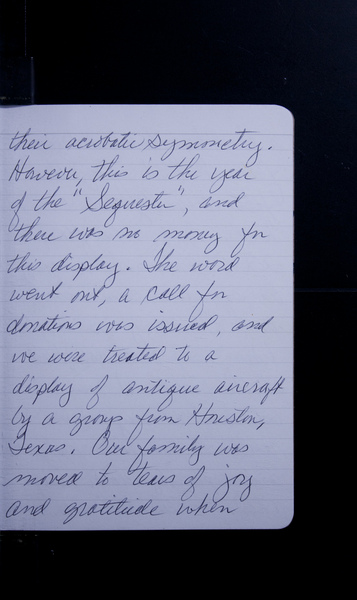 their acrobatic symmetry.
However, this is the year
of the "Sequester", and
there was no money for
this display. The word
went out, a call for
donations was issued, and
we were treated to a
display of antique aircraft
by a group from Houston,
Texas. Our family was
moved to tears of joy
and gratitude when